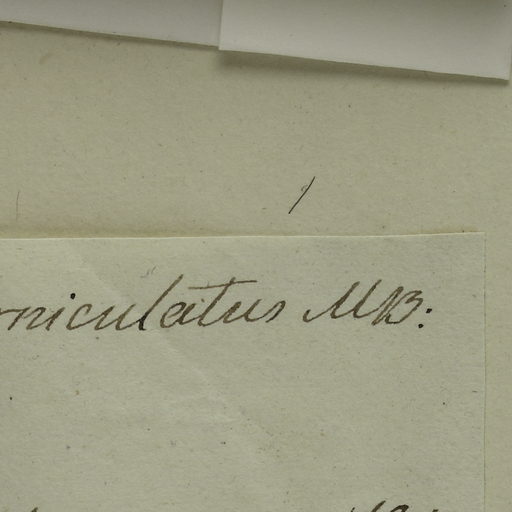 rniculatus MB: